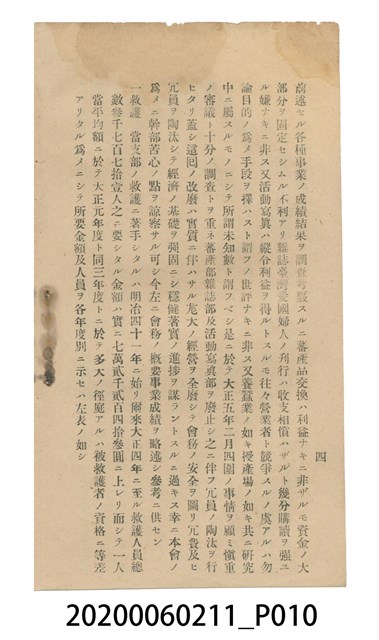 四
前述セル各種事業ノ成績結果ヲ調査考覈スルニ蕃產品交換ハ利益ナキニ非ザルモ資金ノ大
部分ヲ固定セシムル不利アリ雜誌臺灣愛國婦人ノ刊行ハ收支相償ハザルト幾分購讀ヲ强ユ
ル嫌ナキニ非ス又活動寫眞ハ縱令利益ヲ得ルトスルモ往々營業者ト競爭スルノ虞アルハ勿
論目的ノ爲メ手段ヲ擇ハスト謂フノ世評ナキニ非ス又養蠶業ノ如キ授產場ノ如キ共ニ研究
中ニ屬スルモノニシテ所謂未知數ト謂フベシ是ニ於テ大正五年二月四圍ノ事情ヲ顧ミ愼重
ノ審議ト十分ノ調査トヲ重ネ蕃產部雜誌部及活動寫眞部ヲ廢止シ之ニ伴フ冗員ノ陶汰ヲ行
ヒタリ蓋シ這囘ノ改廢ハ實質ニ伴ハサル尨大ノ經營ヲ全廢シ會務ノ安全ヲ圖リ冗費及ヒ
冗員ヲ陶汰シテ經濟ノ基礎ヲ强固ニシ穩健著實ノ進捗ヲ謀ラントスルニ過キス幸ニ本會ノ
爲メニ幹部苦心ノ點ヲ諒察サル可シ今左ニ會務ノ概要事業成績ヲ略述シ參考ニ供セン
一救護 當支部ノ救護ニ著手シタルハ明治四十一年ニ始リ爾來大正四年ニ至ル救護人員總
數參千七百七拾壹人之ニ要シタル金額ハ實ニ七萬貳千貳百四拾參圓ニ上レリ而シテ一人
當平均額ニ於テ大正元年度ト同三年度トニ於テ多大ノ徑庭アルハ被救護者ノ資格ニ等差
アリタル爲メニシテ所要金額及人員ヲ各年度別ニ示セハ左表ノ如シ
20200060211_P010